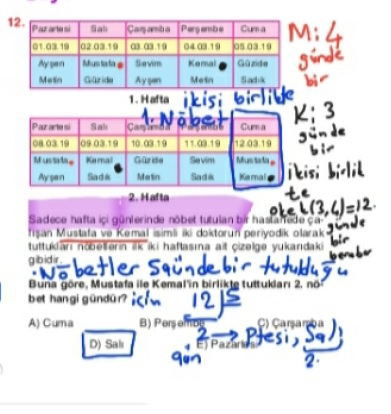 12.
Pazartesi Salı Çarşamba Perşembe Cuma
01.03.19 02.03.19 03.03.19 04.03.19 05.03.19
Ayşen Mustafa Sevim Kemal Güzide
Metin Güzide Ayşen Metin Sadık
1. Hafta
ikisi birlikte
1. Nöbet
M: 4
günde
bir
Pazartesi Salı Çarşamba Perşembe Cuma
08.03.19 09.03.19 10.03.19 11.03.19 12.03.19
Mustafa Kemal Güzide Sevim Mustafa
Ayşen Sadık Metin Sadık Kemal
2. Hafta
K: 3
günde
bir
ikisi birlik
te
okek(3,4)=12
günde
bir
beraber
Sadece hafta içi günlerinde nöbet tutulan bir hastanede ça-
lışan Mustafa ve Kemal isimli iki doktorun periyodik olarak
tuttukları nöbetlerin ilk iki haftasına ait çizelge yukarıdaki
gibidir.
Nöbetler 5 günde bir tutulduğu
Buna göre, Mustafa ile Kemal'in birlikte tuttukları 2. nö-
bet hangi gündür?
için
12 5
2 → Ptesi, Salı
gün
2.
A) Cuma B) Perşembe C) Çarşamba
D) Salı E) Pazartesi